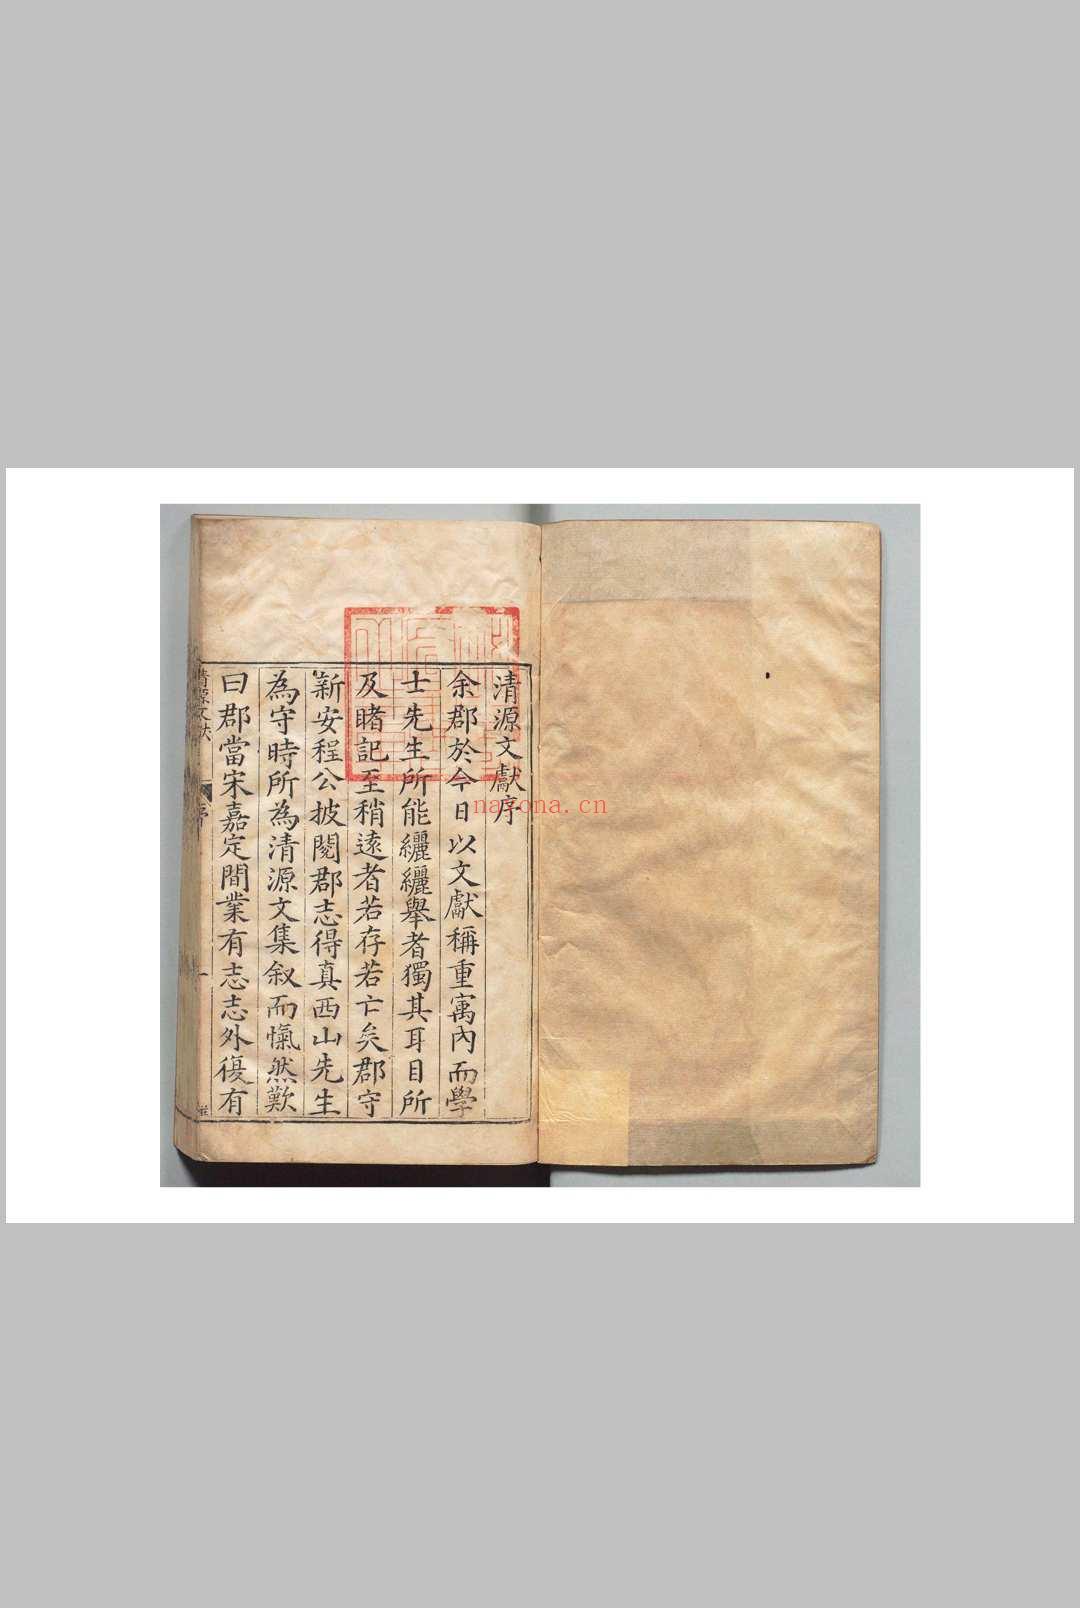 清源文獻序
余郡於今日以文獻稱重寓內而學
士先生所能纚纚舉者獨其耳目所
及睹記至稍遠者若存若亡矣郡守
新安程公披閱郡志得真西山先生
為守時所為清源文集叙而愾然歎
曰郡當宋嘉定間業有志志外復有
清源文獻
序
一
nayona.cn